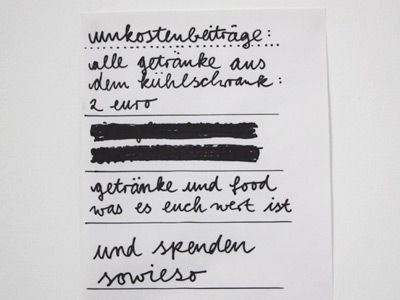 umkostenbeiträge:
alle getränke aus
dem kühlschrank:
2 euro
getränke und food
was es euch wert ist
und spenden
sowieso